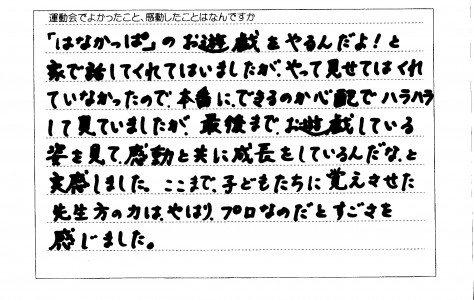 運動会でよかったこと、感動したことはなんですか
「はなかっぱ」のお遊戯をやるんだよ!と
家で話してくれてはいましたが、やって見せてはくれ
ていなかったので、本番に、できるのか心配でハラハラ
して見ていましたが、最後まで、お遊戯している
姿を見て、感動と共に成長をしているんだな、と
実感しました。ここまで、子どもたちに覚えさせた
先生方の力は、やはり、プロなのだとすごさを
感じました。